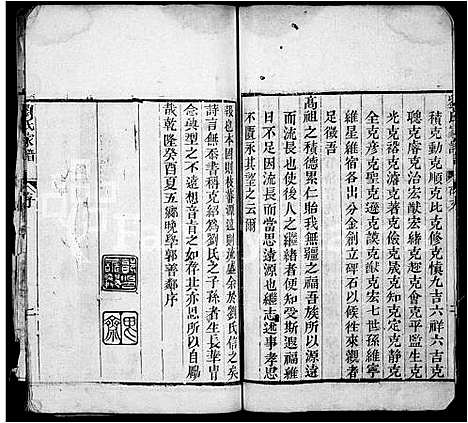 積克動克順克比克修慎九吉六祥六吉克
聰克睿克治宏猷宏緒克開克平監生克
光克榮克定克儉克晟克知克定克靜克
全克彦克聖克遜克談克猷克宏七世孫維寧
維星維宿各出分金創立碑石以俟來觀者
足徵吾
高祖之積德累仁貽我無疆之福吾族所以源遠
而流長也後人之繼緒者可想知受斯遐福維
日不足因流長而當思遠源也繼志述事孝思
不匱永其望之云爾
報也本固則枝蕃源遠則流盛余於劉氏信之矣
詩言無忝書稱克紹為劉氏之子孫者生長華胄
念典型之不遠想音旨之如存其亦思所以自處
哉乾隆癸酉夏五鄉晚學郭善鄰序
劉氏家譜
序